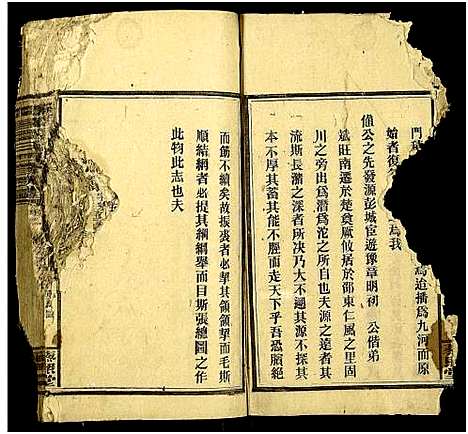 門
為追播為九河而原
始者復
為我
傎公之先發源彭城宦遊豫章明初　公偕弟
斌旺南遷於楚奠厥攸居於邵東仁風之里固
川之旁出為潛為沱之所自也夫源之遠者其
流斯長瀦之深者所决乃大不遡其源不探其
本不厚其蓄其能不脛而走天下乎吾恐脂絶
而
不續矣故振裘者必挈其領領挈而毛斯
順結網者必提其綱綱舉而目斯張總圖之作
此物此志也夫